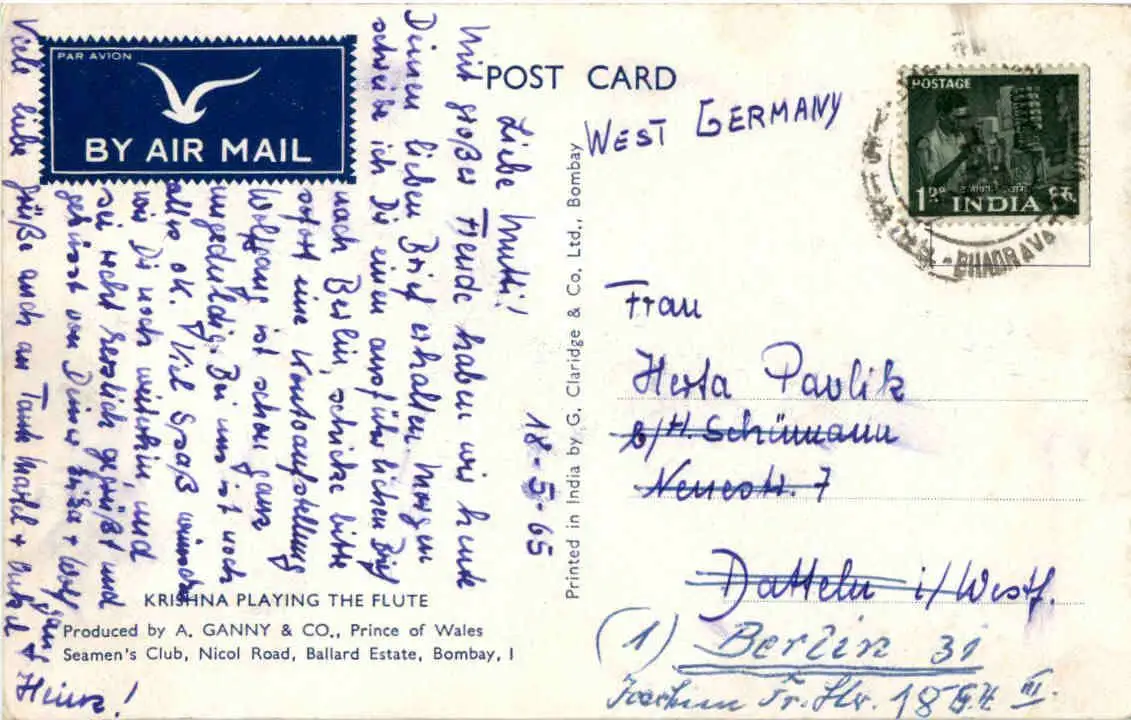 PAR AVION
BY AIR MAIL
POST CARD
WEST GERMANY
POSTAGE
INDIA
BHADRAVA
18-5-65
Liebe Mutti!
Mit großer Freude haben wir heute
Deinen lieben Brief erhalten. Morgen
schreibe ich Dir einen ausführlichen Brief
nach Berlin, schicke bitte
sofort eine Kontoaufstellung
Wolfgang ist schon ganz
ungeduldig. Bei uns ist noch
alles ok. Viel Spaß wünschen
wir Dir noch weiterhin, und
sei recht herzlich gegrüßt und
geküsst von Deiner + Wolfgang
Viele liebe Grüße auch an Tante + Onkel
Heinz!
Printed in India by G. Claridge & Co., Ltd., Bombay
Frau
Herta Pavlik
b/H. Schürmann
Neuestr. 7
Datteln i/Westf.
(1) Berlin 31
Joachim Fr. Str. 18 III.
KRISHNA PLAYING THE FLUTE
Produced by A. GANNY & CO., Prince of Wales
Seamen's Club, Nicol Road, Ballard Estate, Bombay, I